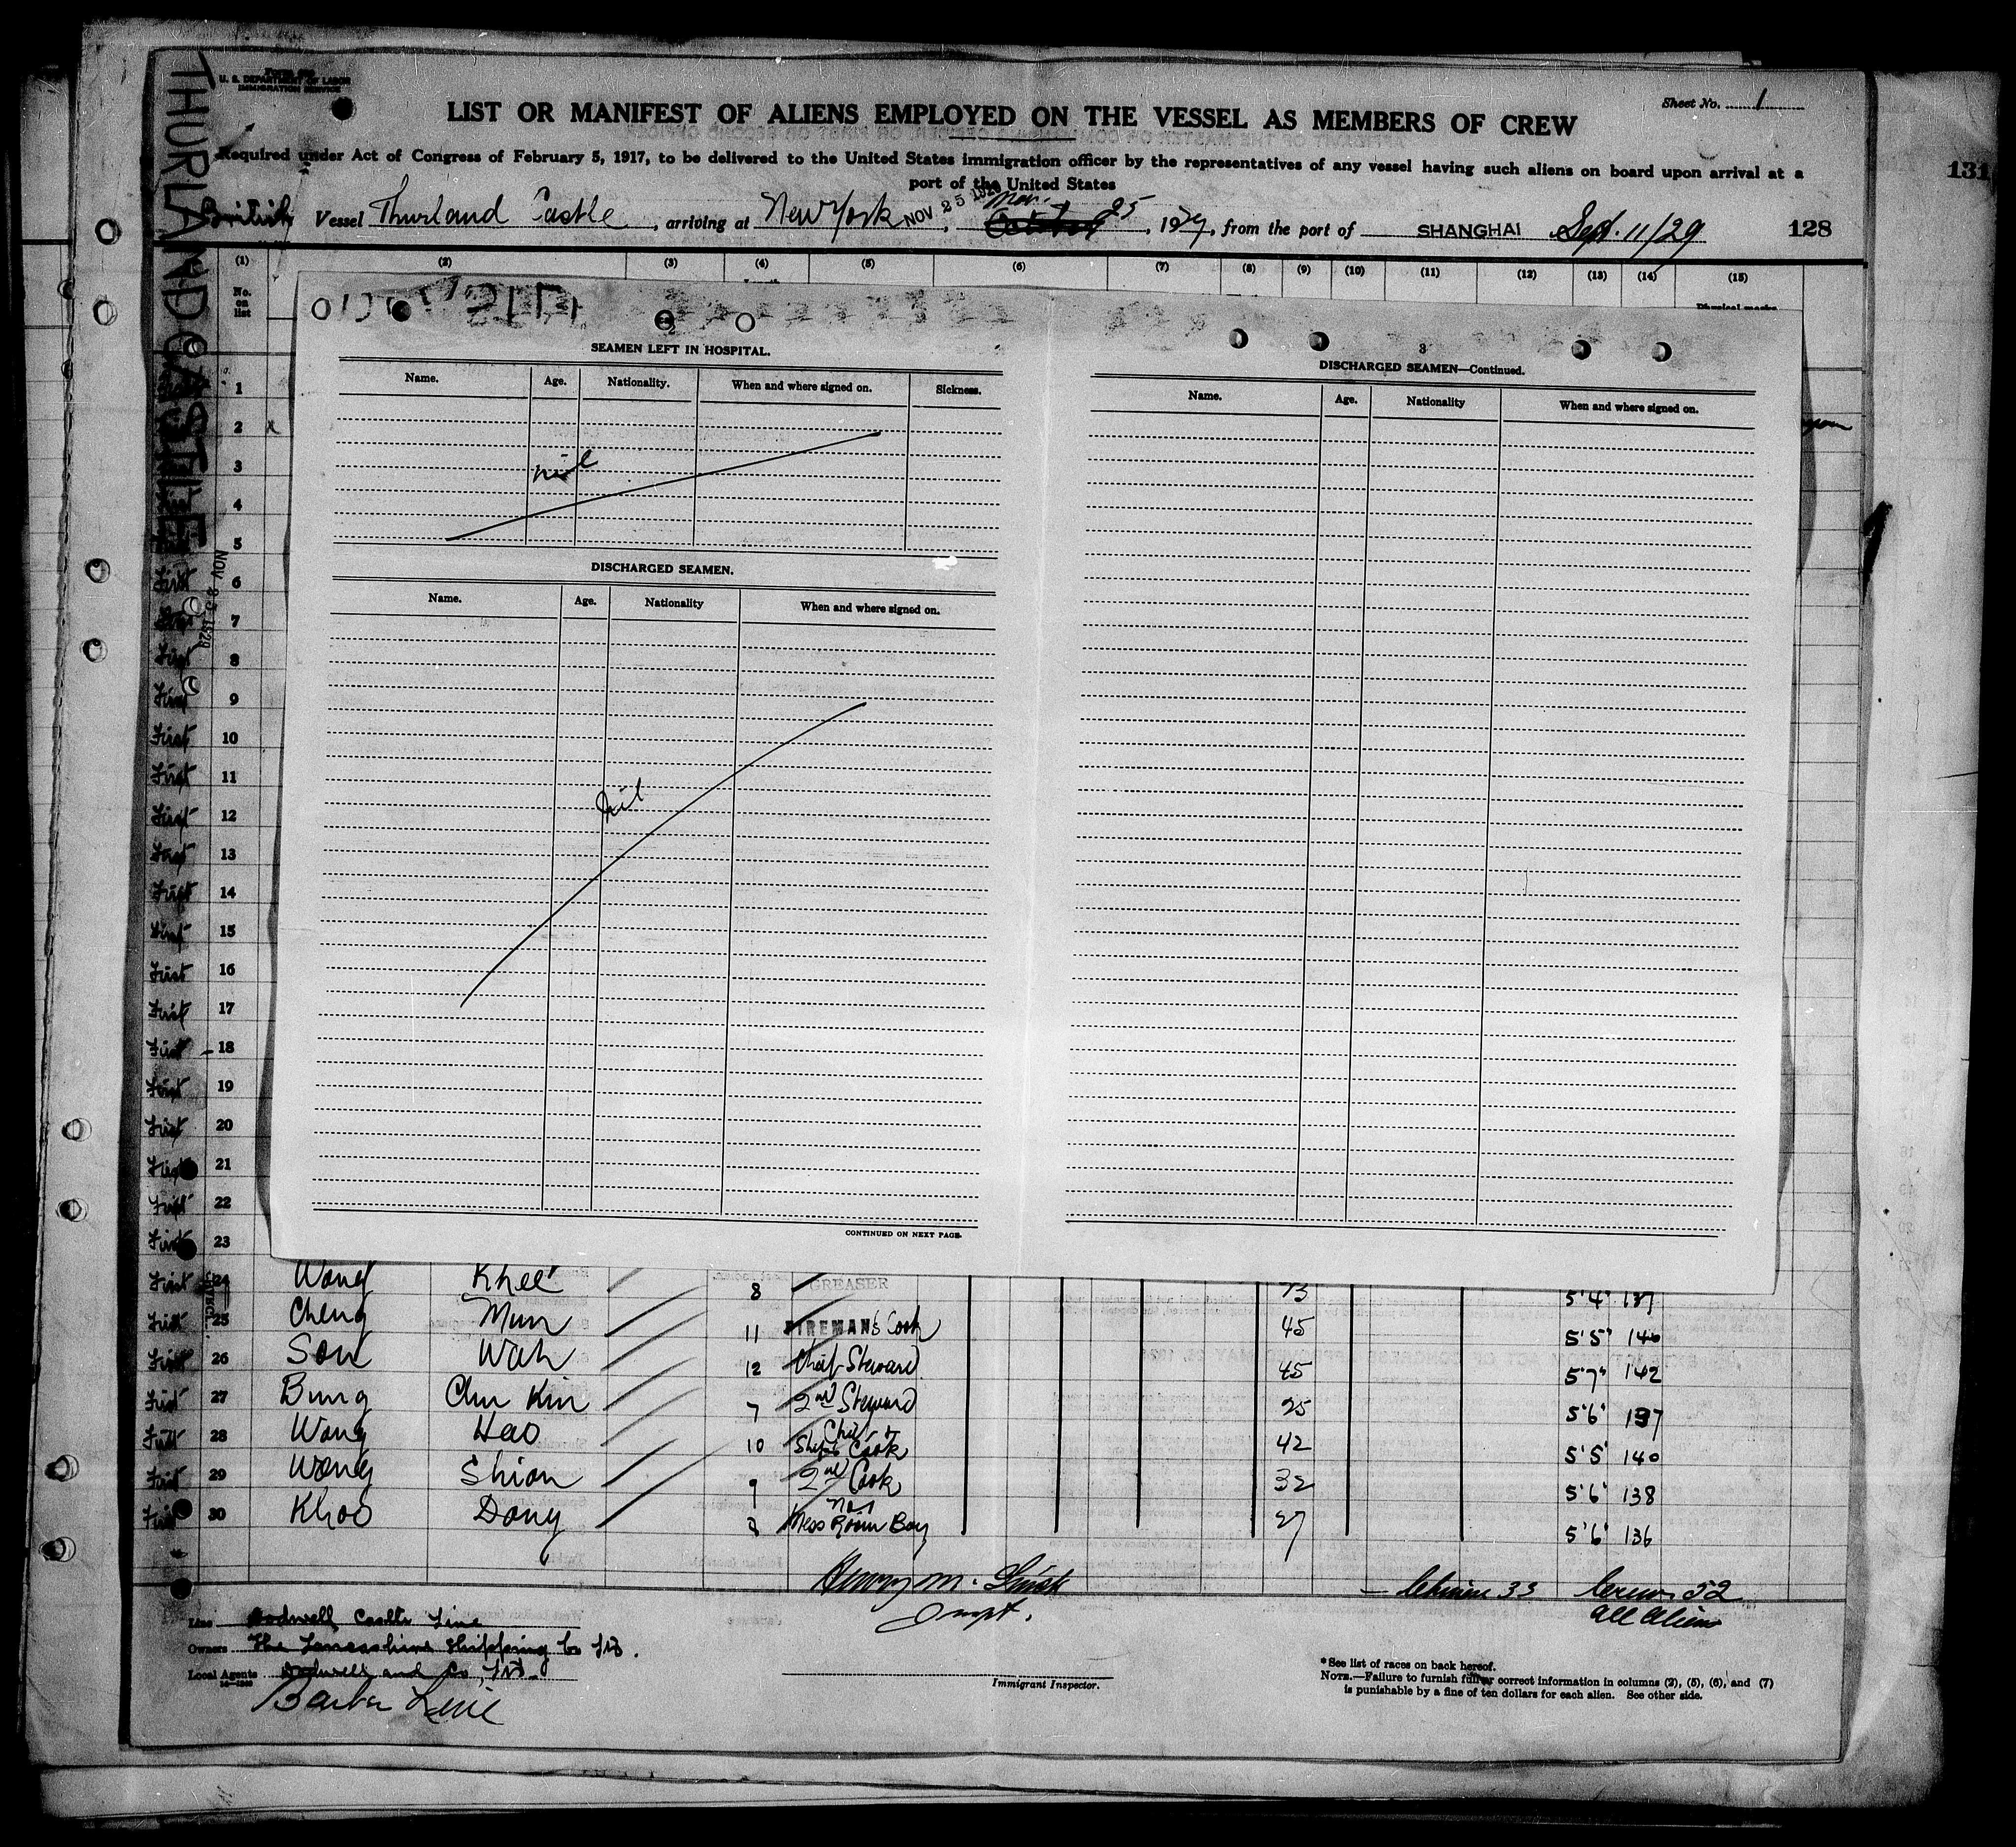 THURLAND CASTLE
U. S. DEPARTMENT OF LABOR
IMMIGRATION SERVICE
Sheet No. 1
LIST OR MANIFEST OF ALIENS EMPLOYED ON THE VESSEL AS MEMBERS OF CREW
Required under Act of Congress of February 5, 1917, to be delivered to the United States immigration officer by the representatives of any vessel having such aliens on board upon arrival at a
port of the United States
131
British Vessel Thurland Castle, arriving at New York NOV 25 1929, Nov. 25, 1929, from the port of SHANGHAI Sept. 11/29 128
(1) (2) (3) (4) (5) (6) (7) (8) (9) (10) (11) (12) (13) (14) (15)
No. on list
2
SEAMEN LEFT IN HOSPITAL.
Name. Age. Nationality. When and where signed on. Sickness.
nil
DISCHARGED SEAMEN.
Name. Age. Nationality When and where signed on.
nil
CONTINUED ON NEXT PAGE.
3
DISCHARGED SEAMEN—Continued.
Name. Age. Nationality When and where signed on.
1
2 x
3
4
5
NOV 25 1929
First 6
7
First 8
First 9
First 10
First 11
First 12
First 13
First 14
First 15
First 16
First 17
First 18
First 19
First 20
First 21
First 22
First 23
First 24 Wong Khee 8 GREASER 5'4"
First 25 Cheng Mun 11 FIREMAN's Cook 45 5'5" 140
First 26 Son Wah 12 Chief Steward 45 5'7" 142
First 27 Bung Chu Kin 7 2nd Steward 25 5'6" 137
First 28 Wong Hao 10 Chief Ship's Cook 42 5'5" 140
First 29 Wong Shion 9 2nd Cook 32 5'6" 138
First 30 Khoo Dong Mess Room Boy 27 5'6" 136
Chinese 33 Crew 52
all aliens
Line Dodwell Castle Line
Owners The Lancashire Shipping Co Ltd.
Local Agents Dodwell and Co, Ltd.
Barber Line
Immigrant Inspector.
*See list of races on back hereof.
NOTE.—Failure to furnish full or correct information in columns (2), (5), (6), and (7)
is punishable by a fine of ten dollars for each alien. See other side.